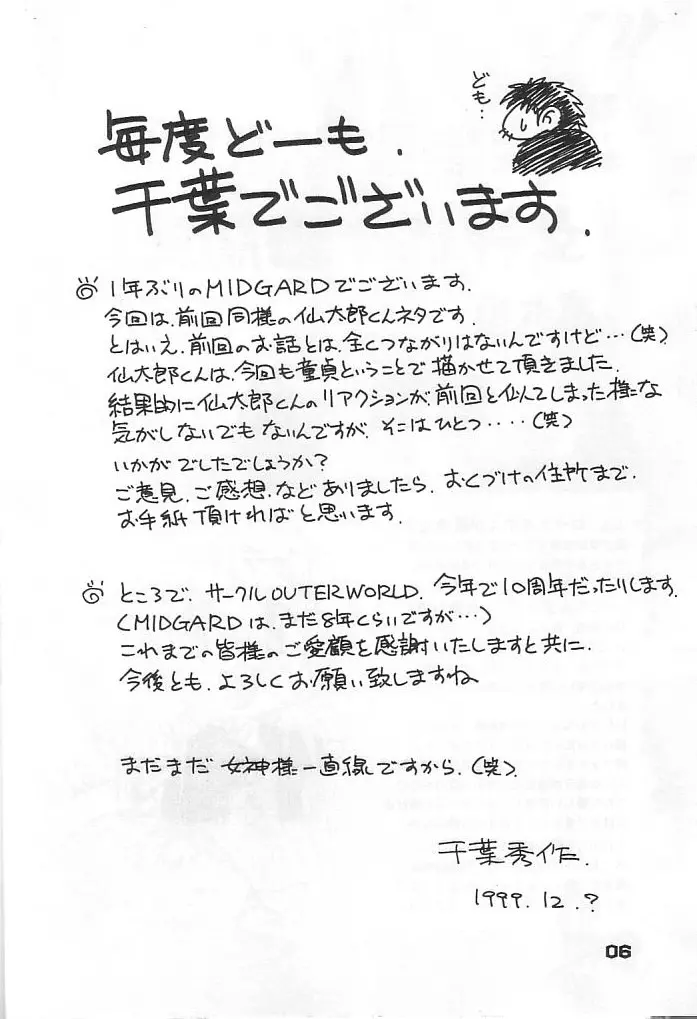 ども…
毎度どーも.
千葉でございます.
1年ぶりのMIDGARDでございます.
今回は、前回同様の仙太郎くんネタです.
とはいえ、前回のお話とは、全くつながりはないんですけど…(笑)
仙太郎くんは、今回も童貞ということで描かせて頂きました.
結果的に仙太郎くんのリアクションが、前回と似んてしまった様な
気がしないでもないんですが、そこはひとつ‥‥(笑)
いかがでしたでしょうか?
ご意見、ご感想、などありましたら、おくづけの住所まで、
お手紙頂ければと思います.
ところで、サークルOUTERWORLD、今年で10周年だったりします.
(MIDGARDは、まだ8年くらいですが…)
これまでの皆様のご愛顧を感謝いたしますと共に、
今後とも、よろしくお願い致しますね
まだまだ女神様一直線ですから.(笑).
千葉秀作.
1999.12.?
06